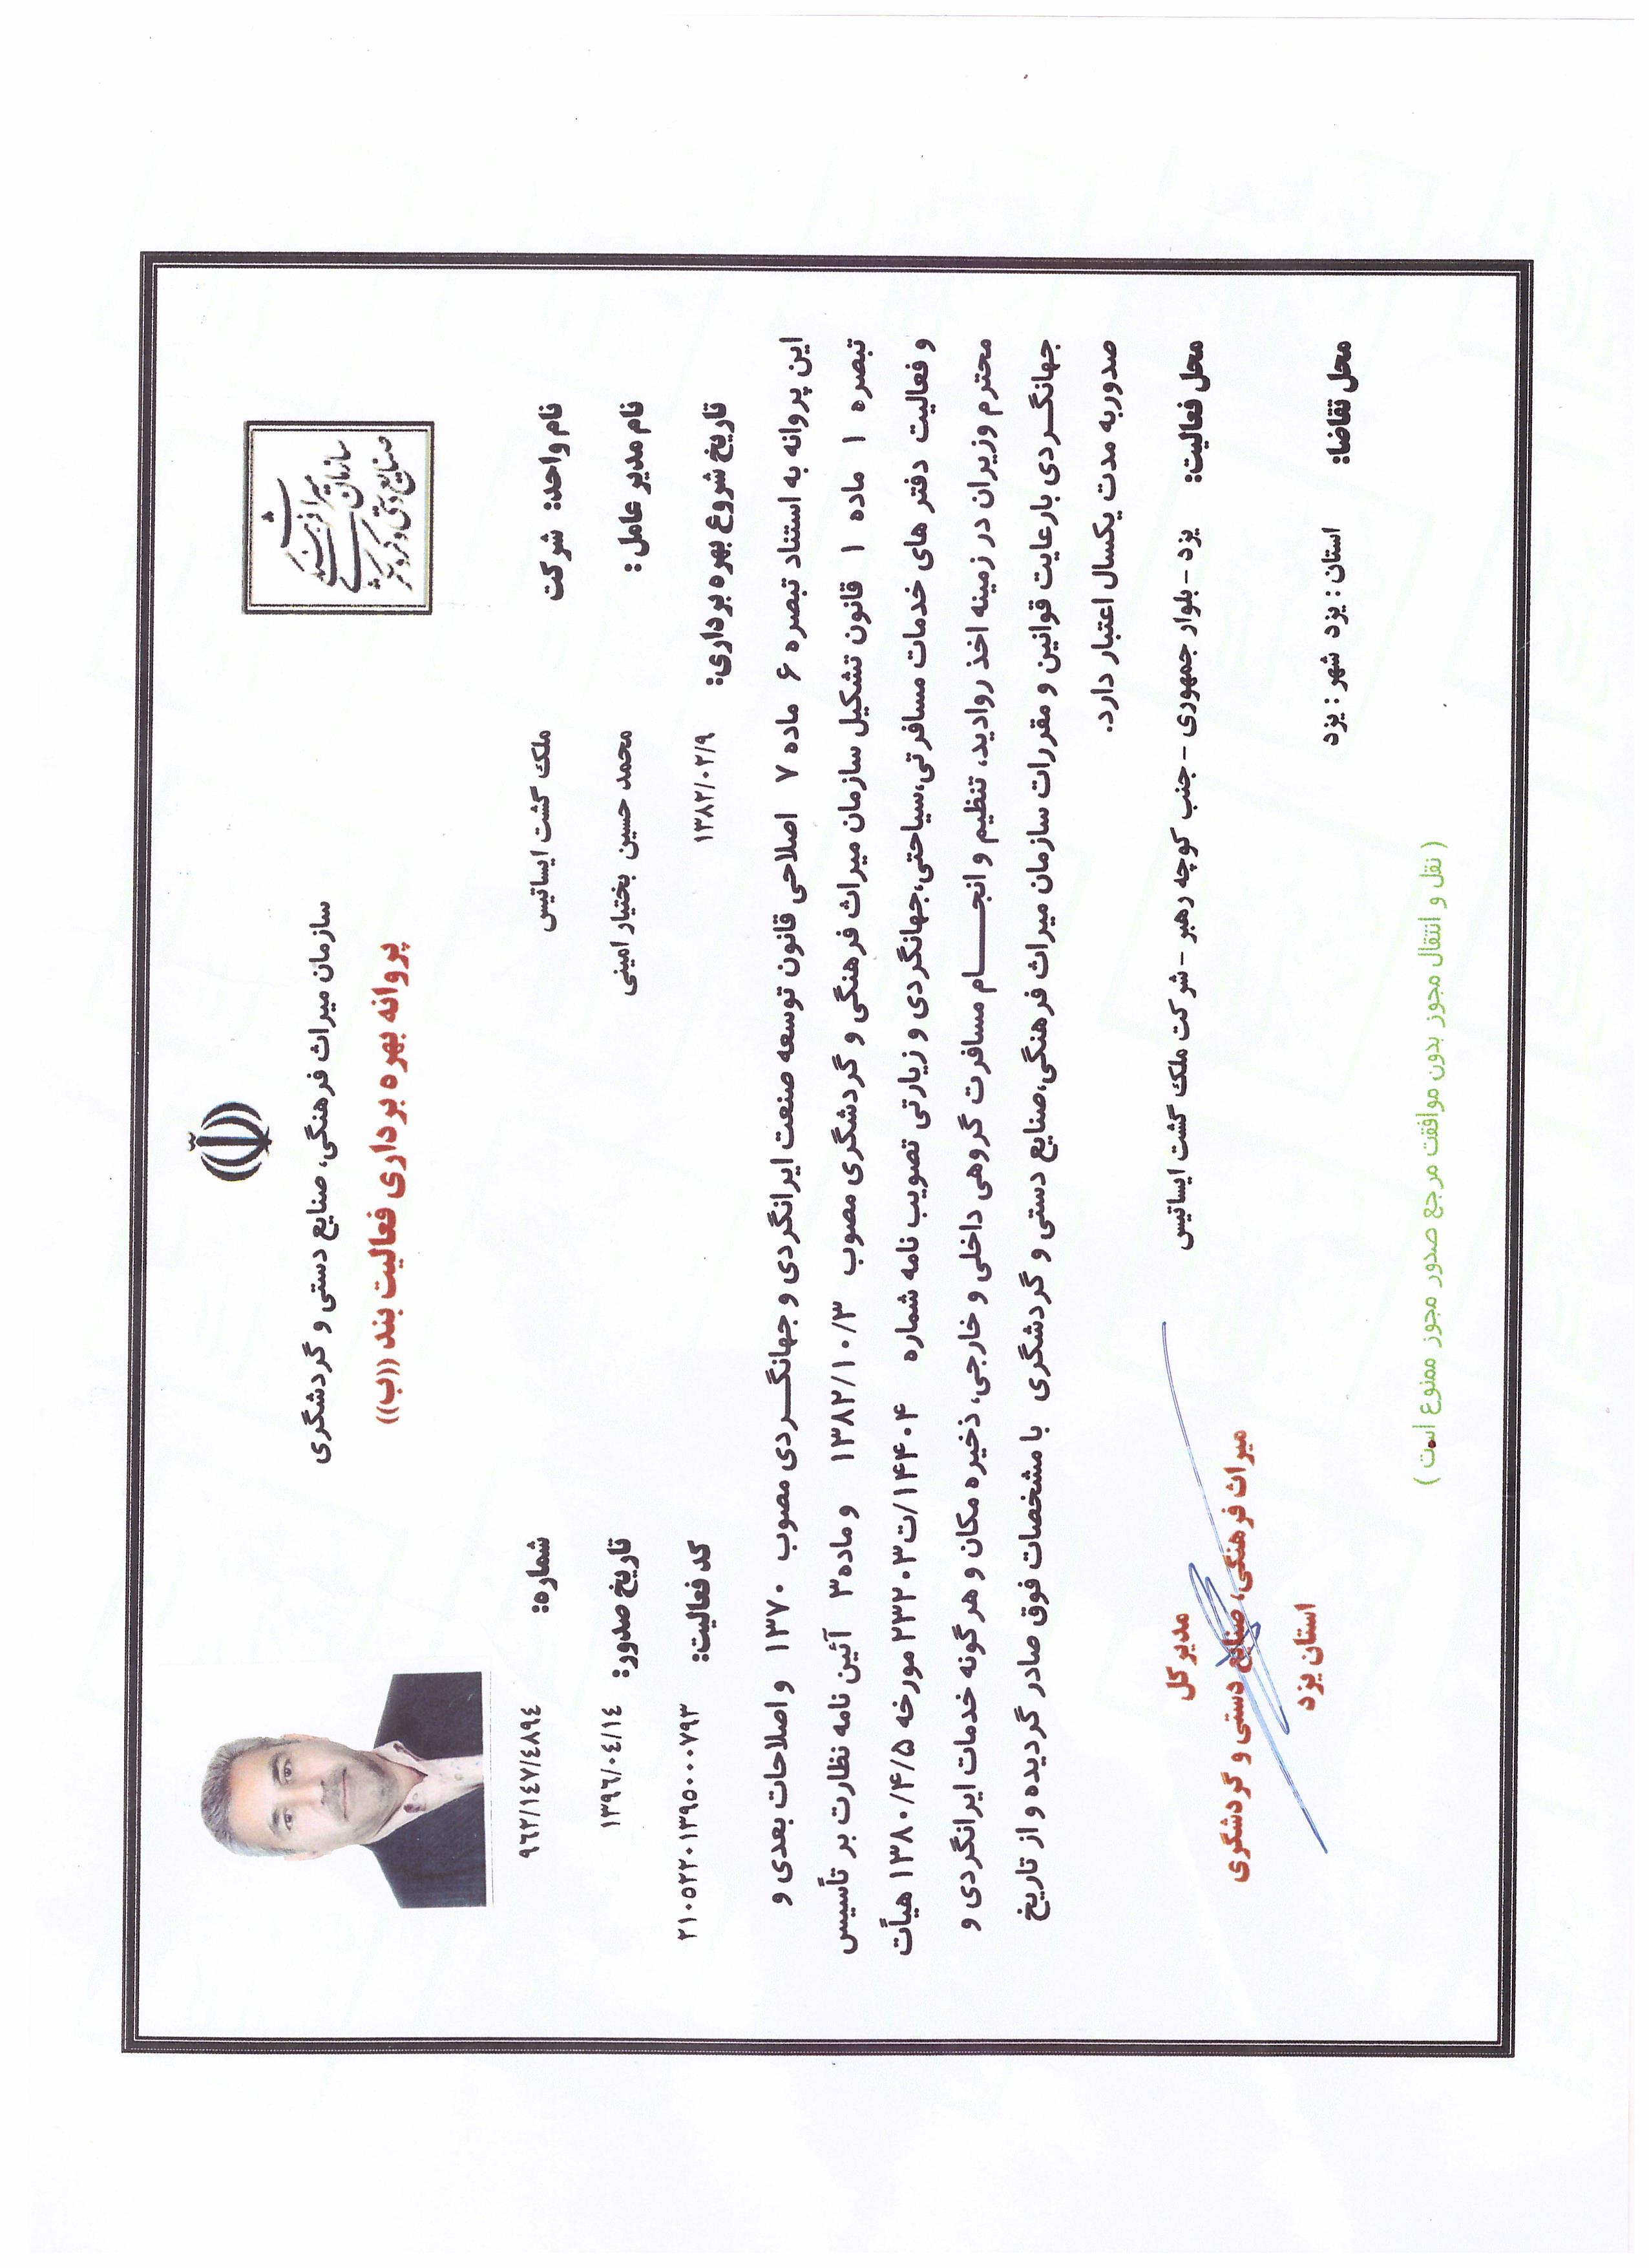 سازمان میراث فرهنگی، صنایع دستی و گردشگری
سازمان میراث فرهنگی
صنایع دستی و گردشگری
پروانه بهره برداری فعالیت بند ((ب))
نام واحد: شرکت ملک گشت ایساتیس شماره: ۹۶۲/۱۴۷/٤٨٩٤
نام مدیر عامل : محمد حسین بختیار امینی تاریخ صدور: ۱۳۹٦/۰٤/۱٤
تاریخ شروع بهره برداری: ۱۳۸۲/۰۲/۹ کد فعالیت: ۲۱۰۵۲۲۰۱۳۹۵۰۰۰۷۹۳
این پروانه به استناد تبصره ۶ ماده ۷ اصلاحی قانون توسعه صنعت ایرانگردی و جهانگـــردی مصوب ۱۳۷۰ و اصلاحات بعدی و
تبصره ۱ ماده ۱ قانون تشکیل سازمان میراث فرهنگی و گردشگری مصوب ۱۳۸۲/۱۰/۳ و ماده ۳ آئین نامه نظارت بر تأسیس
و فعالیت دفتر های خدمات مسافرتی،سیاحتی،جهانگردی و زیارتی تصویب نامه شماره ۱۴۴۰۴/ت۲۳۲۰۳ مورخه ۱۳۸۰/۴/۵ هیأت
محترم وزیران در زمینه اخذ روادید، تنظیم و انجـــــام مسافرت گروهی داخلی و خارجی، ذخیره مکان و هر گونه خدمات ایرانگردی و
جهانگـــردی بارعایت قوانین و مقررات سازمان میراث فرهنگی،صنایع دستی و گردشگری با مشخصات فوق صادر گردیده و از تاریخ
صدوربه مدت یکسال اعتبار دارد.
محل فعالیت: یزد -بلوار جمهوری -جنب کوچه رهبر -شرکت ملک گشت ایساتیس
محل تقاضا: استان : یزد شهر : یزد
مدیر کل
میراث فرهنگی، صنایع دستی و گردشگری
استان یزد
( نقل و انتقال مجوز بدون موافقت مرجع صدور مجوز ممنوع است )